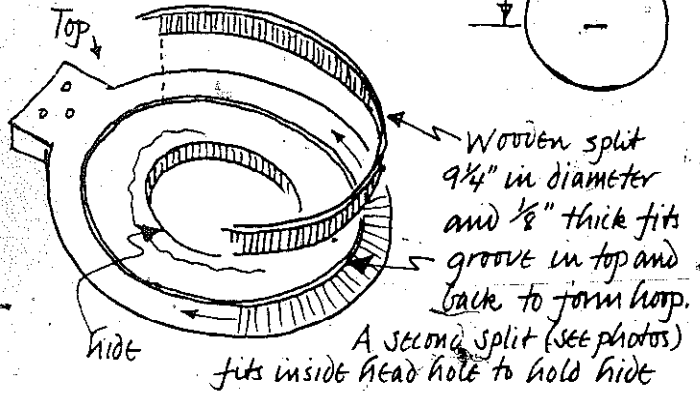 Top
Wooden split
9¼" in diameter
and ⅛" thick fits
groove in top and
back to form hoop.
A second split (see photos)
fits inside head hole to hold hide
hide